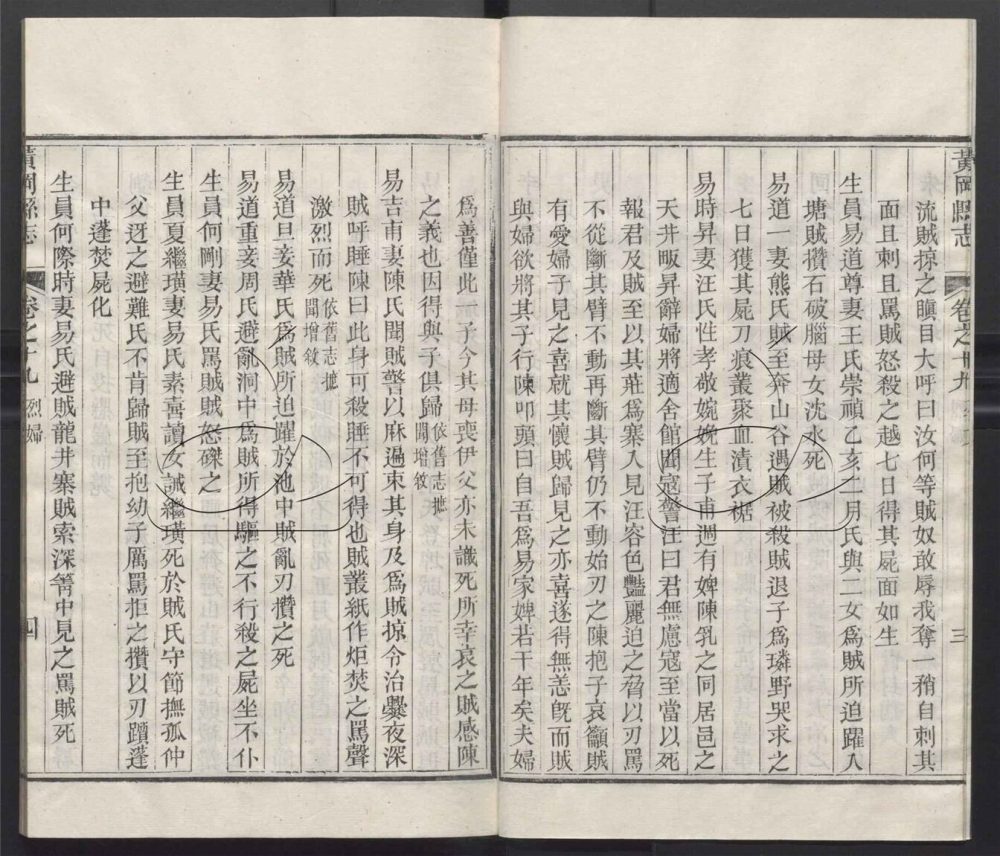 黃岡縣志
卷之十九
三
流賊掠之瞋目大呼曰汝何等賊奴敢辱我奪一稍自刺其
面且刺且罵賊怒殺之越七日得其屍面如生
生員易道尊妻王氏崇禎乙亥二月氏與二女爲賊所迫躍入
塘賊攢石破腦母女沈水死
易道一妻熊氏賊至奔山谷遇賊被殺賊退子爲璘野哭求之
七日獲其屍刀痕叢聚血漬衣裾
易時昇妻汪氏性孝敬婉娩生子甫週有婢陳乳之同居邑之
天井畈昇辭婦將適舍館聞寇警汪曰君無慮寇至當以死
報君及賊至以其莊爲寨入見汪容色豔麗迫之脅以刃罵
不從斷其臂不動再斷其臂仍不動始刃之陳抱子哀籲賊
有愛婦子見之喜就其懷賊歸見之亦喜遂得無恙旣而賊
與婦欲將其子行陳叩頭曰自吾爲易家婢若干年矣夫婦
爲善僅此一子今其母喪伊父亦未識死所幸哀之賊感陳
之義也因得與子俱歸依舊志摭聞增敘
易吉甫妻陳氏聞賊警以麻過束其身及爲賊掠令治爨夜深
賊呼睡陳曰此身可殺睡不可得也賊叢紙作炬焚之罵聲
激烈而死依舊志摭聞增敘
易道旦妾華氏爲賊所迫躍於池中賊亂刃攢之死
易道重妾周氏避亂澗中爲賊所得驅之不行殺之屍坐不仆
生員何剛妻易氏罵賊賊怒磔之
生員夏繼璜妻易氏素喜讀女誡繼璜死於賊氏守節撫孤仲
父迓之避難氏不肯歸賊至抱幼子厲罵拒之攢以刃躓蓬
中蓬焚屍化
生員何際時妻易氏避賊龍井寨賊索深箐中見之罵賊死
黃岡縣志
卷之十九
烈婦
四